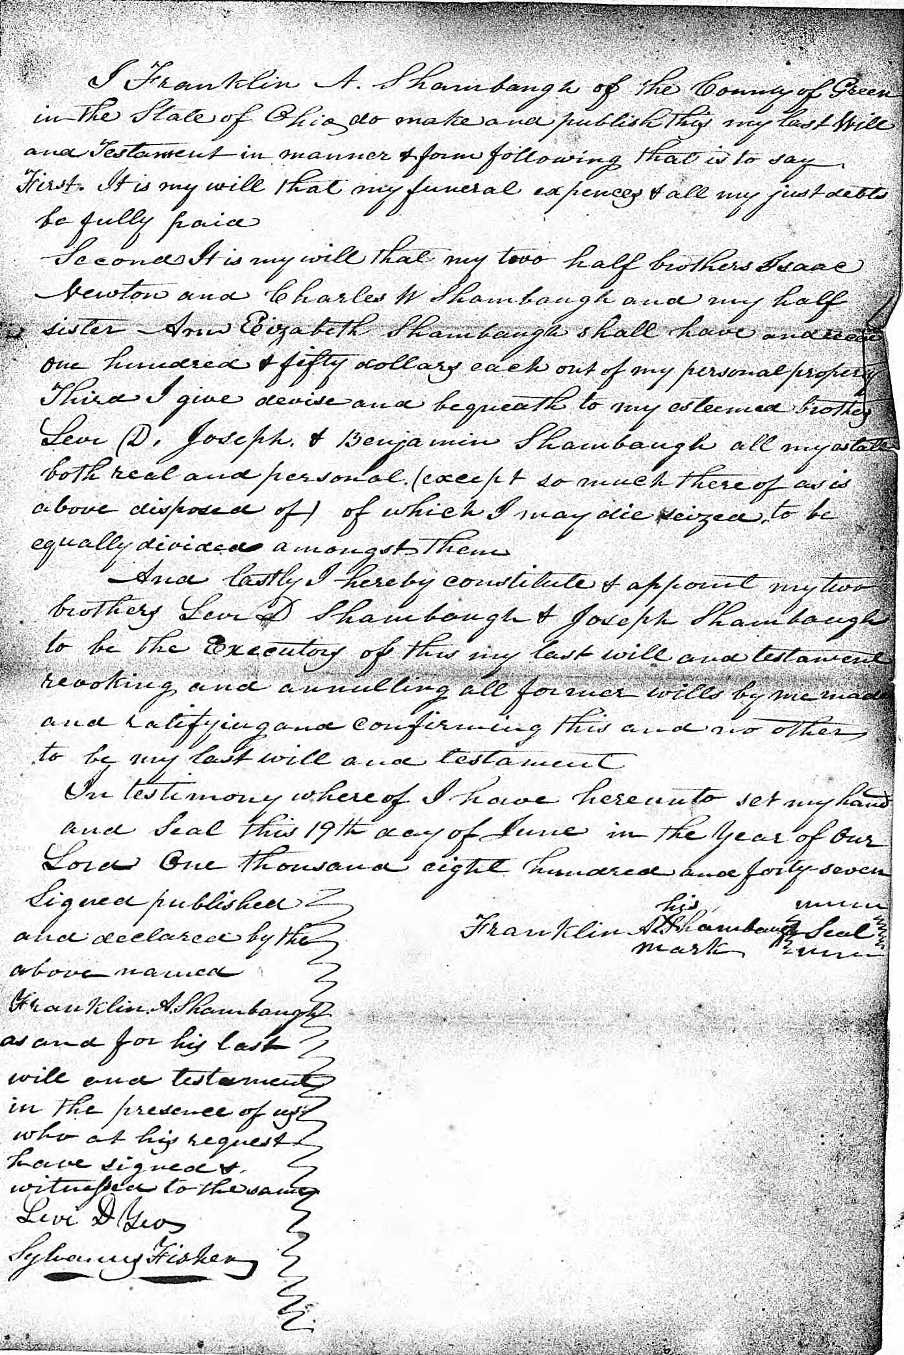 I Franklin A. Shambaugh of the County of Green
in the State of Ohio do make and publish this my last Will
and Testament in manner & form following that is to say
First. It is my will that my funeral expences & all my just debts
be fully paid
Second It is my will that my two half brothers Isaac
Newton and Charles W Shambaugh and my half
sister Ann Elizabeth Shambaugh shall have and
one hundred & fifty dollars each out of my personal property
Third I give devise and bequeath to my esteemed brothers
Levi D. Joseph & Benjamin Shambaugh all my estate
both real and personal. (except so much thereof as is
above disposed of) of which I may die seized, to be
equally divided amongst them
And lastly I hereby constitute & appoint my two
brothers Levi D Shambaugh & Joseph Shambaugh
to be the Executors of this my last will and testament
revoking and annulling all former wills by me made
and ratifying and confirming this and no other
to be my last will and testament
In testimony whereof I have hereunto set my hand
and Seal this 19th day of June in the Year of Our
Lord One thousand eight hundred and forty-seven
Signed published
and declared by the
above named
Franklin A. Shambaugh
as and for his last
will and testament
in the presence of us
who at his request
have signed &
witnessed to the same
Levi D Yeo
Sylvanus Fisher
his
Franklin A X Shambaugh Seal
mark